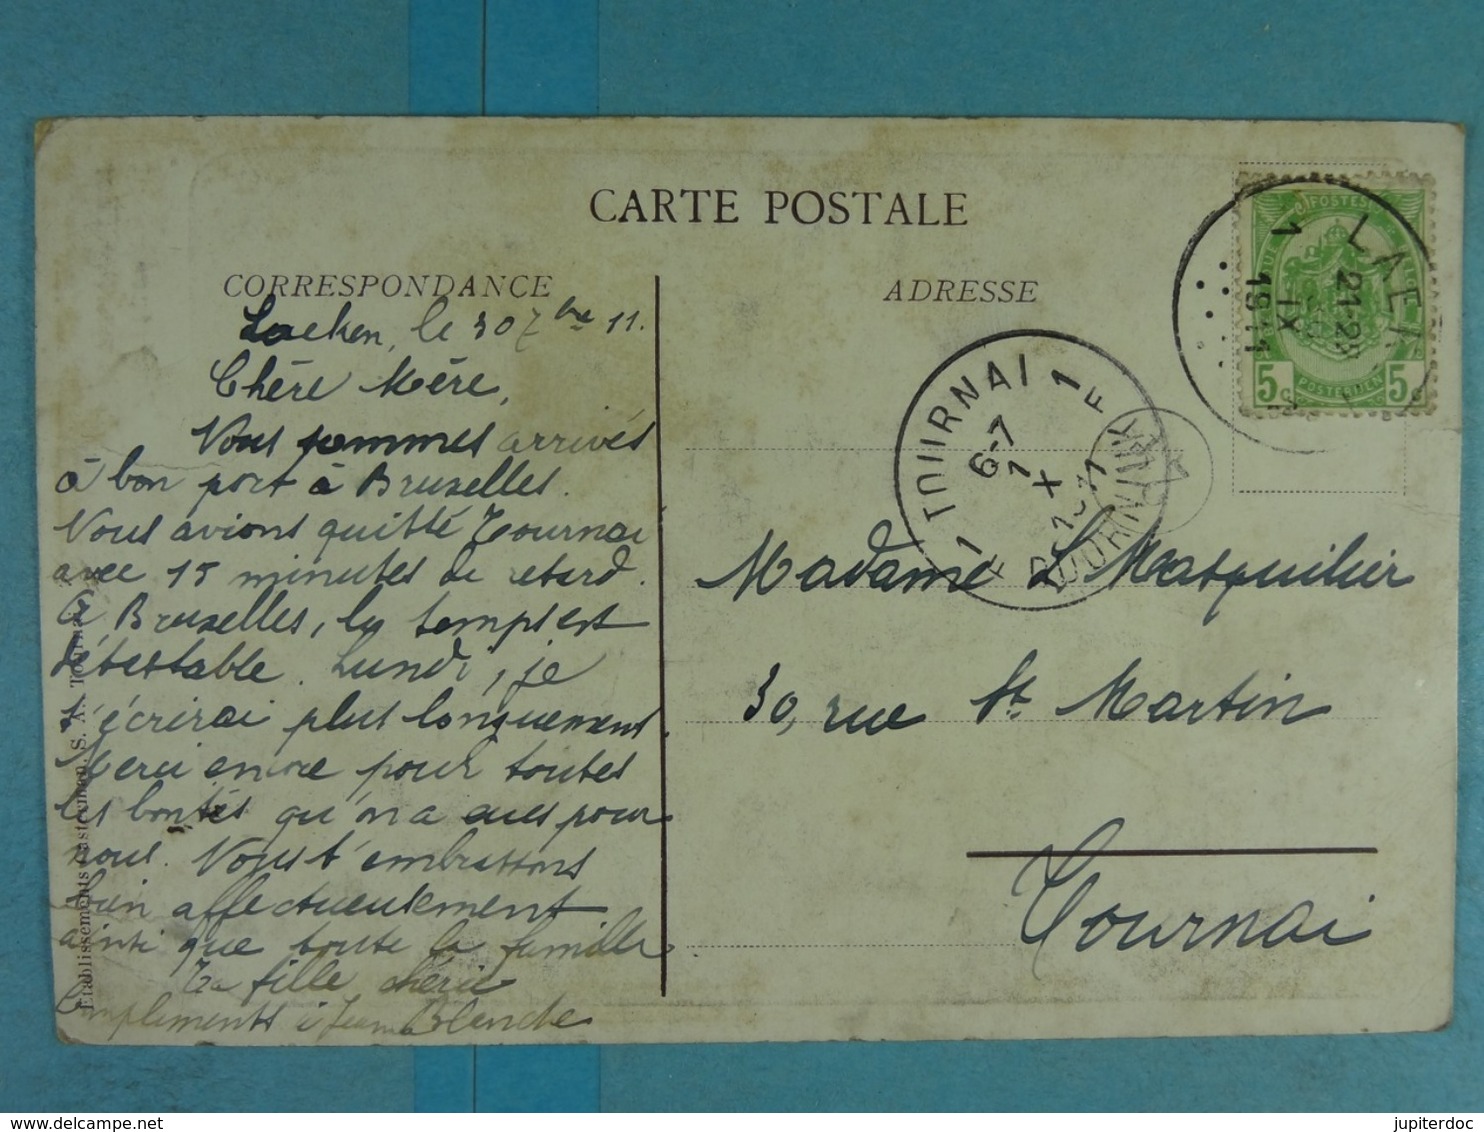 CARTE POSTALE
CORRESPONDANCE
Laeken, le 30 7bre 11.
Chère Mère,
Nous sommes arrivés
à bon port à Bruxelles.
Nous avions quitté Tournai
avec 15 minutes de retard.
à Bruxelles, le temps est
détestable. Lundi, je
t'écrirai plus longuement.
Merci encore pour toutes
les bontés qu'on a eues pour
nous. Nous t'embrassons
bien affectueusement
ainsi que toute la famille
Ta fille chérie
Compliments à Blanche
Etablissements Casterman, S. A. Tournai
ADRESSE
Madame L Masquilier
30, rue St. Martin
Tournai
1 TOURNAI 1 F
6-7
1
X
1911
DOORNIJK
LAEK
21-22
1 IX
1911
POSTES
POSTERIJEN
5 5
jupiterdoc
delcampe.net